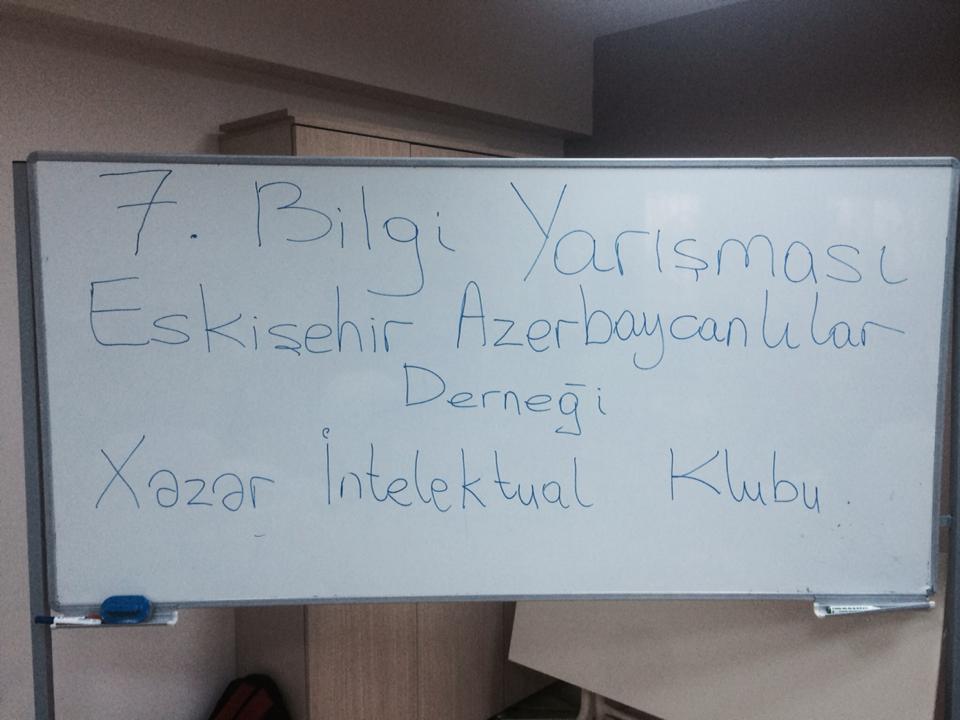 7. Bilgi Yarışması
Eskişehir Azerbaycanlılar
Derneği
Xəzər İntelektual Klubu